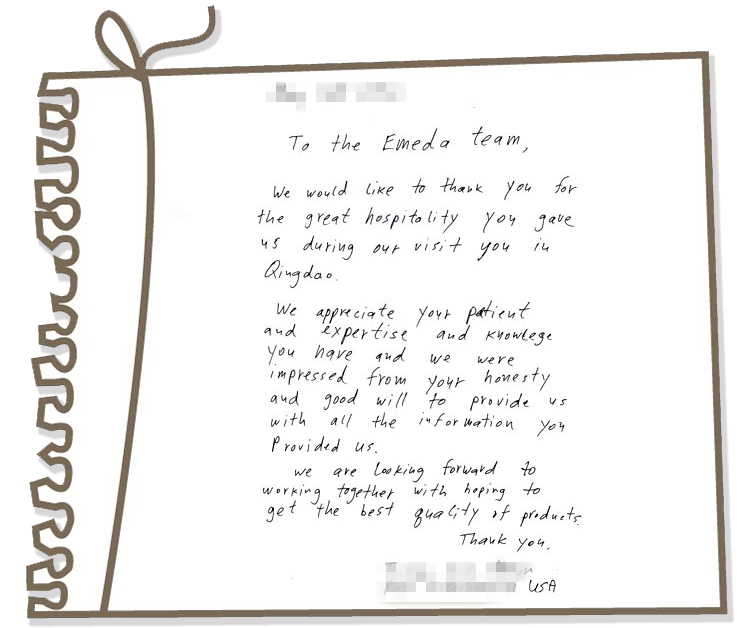 To the Emeda team,
We would like to thank you for
the great hospitality you gave
us during our visit you in
Qingdao.
We appreciate your patient
and expertise and knowlege
you have and we were
impressed from your honesty
and good will to provide us
with all the information you
Provided us.
we are looking forward to
working together with hoping to
get the best quality of products.
Thank you.
USA